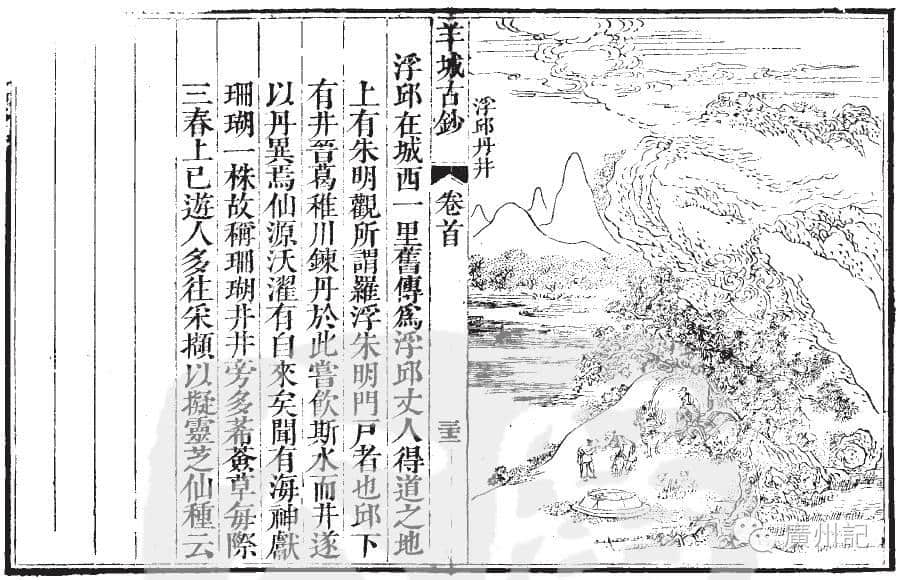 浮邱丹井
羊城古鈔
卷首
三十三
浮邱在城西一里舊傳爲浮邱丈人得道之地
上有朱明觀所謂羅浮朱明門戸者也邱下
有井晉葛稚川鍊丹於此嘗飲斯水而井遂
以丹異焉仙源沃濯有自來矣聞有海神獻
珊瑚一株故稱珊瑚井井旁多蓍薟草每際
三春上巳遊人多往采擷以擬靈芝仙種云
廣州記